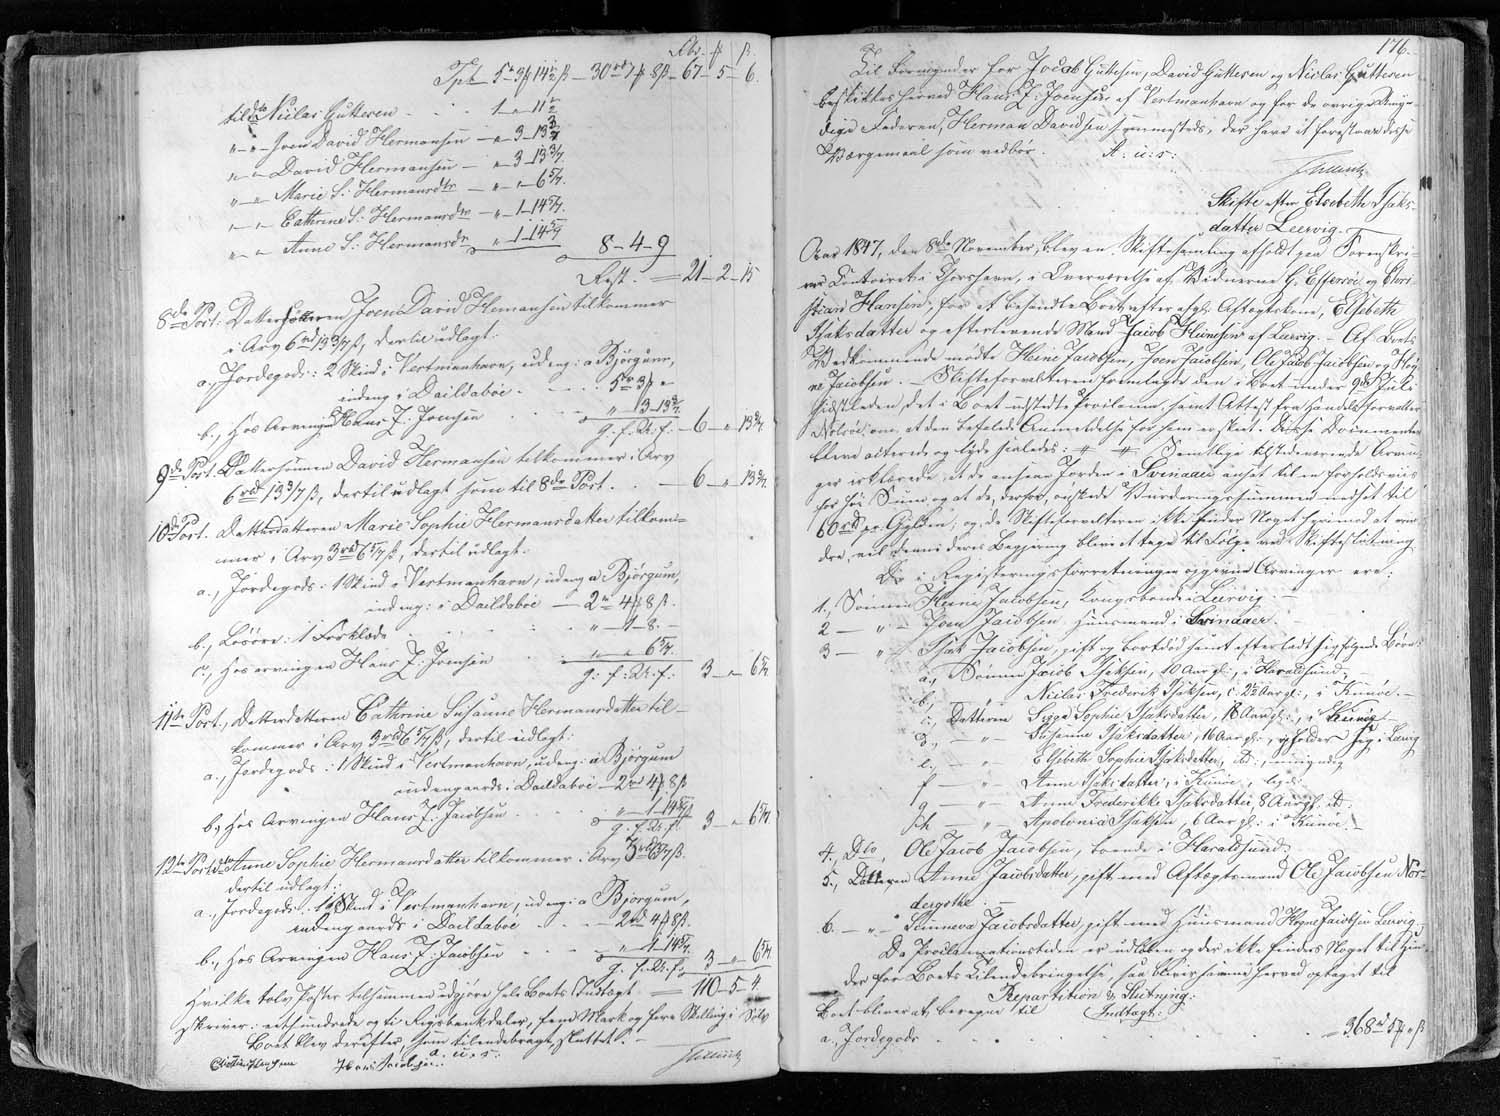 Rbs. ꝭ β.
Tpt 5 3ꝭ 14½ β — 30 rd 7ꝭ 8β — 67 — 5 — 6.
til do Niclas Guttesen . . . 1 " 11½
" — " — Joen David Hermansen — " 3 — 13 3/7
" — " — David Hermansen — " 3 — 13 3/7.
" — " — Marie S: Hermansdtr — " — " — 6 5/7.
" — " — Cathrine S: Hermansdtr — " — 1 — 14 5/7.
" — " — Anne S: Hermansdr " 1 — 14 5/7
8 — 4 — 9
Rest. — = 21 — 2 — 15
8de Port: Dattersønnen Joen David Hermansen tilkommer
i Arv 6 rd 13 3/7 β, dertil udlagt:
a., Jordegods: 2 Skind i Vestmanhavn, udeng: a Bjørgum,
indeng i Daildaboe . . . 5 3ꝭ "
b., Hos Arvingen Hans J: Joensen . . . " 3 — 13 3/7.
g: f: Ar: f: — 6 — " — 13 3/7.
9de Port. Dattersønnen David Hermansen tilkommer i Arv
6 rd 13 3/7 β, dertil udlagt som til 8de Port. . — 6 — " — 13 3/7.
10de Port. Datterdatteren Marie Sophie Hermansdatter tilkom-
mer i Arv 3 rd 6 5/7 β, dertil udlagt:
a., Jordegods: 1 Skind i Vestmanhavn, udeng a Bjørgum,
indeng: i Daildaboe — 2 4ꝭ 8β.
b., Løsøre: 1 Forklæde . . . " — 1 — 8. —
c., Hos arvingen Hans J: Joensen . . " — " — 6 5/7.
g: f: Ar: f: 3 — " — 6 5/7
11te Port., Datterdatteren Cathrine Susanne Hermansdatter til-
kommer i Arv 3 rd 6 5/7 β, dertil udlagt:
a., Jordegods: 1 Skind i Vestmanhavn, udeng: a Bjørgum
indengaards i Daildaboe — 2 4ꝭ 8β
b., Hos Arvingen Hans J: Jacobsen . . . " — 1 — 14 5/7
g: f: Ar: f: 3 — " — 6 5/7
12te Port. do Anne Sophie Hermansdatter tilkommer i Arv 3 rd 6 5/7 β.
dertil udlagt:
a., Jordegods: 1 Skind i Vestmanhavn, udeng: a Bjørgum,
indengaards i Daildaboe . . — 2 4ꝭ 8β.
b., Hos Arvingen Hans J: Jacobsen . . " 1 — 14 5/7.
g: f: Ar: f: 3 — " — 6 5/7.
Hvilke tolv Poster tilsammen udgjøre hele Boets Indtægt — = 110 — 5 — 4.
skriver: eethundrede og ti Rigsbankdaler, fem Mark og fire Skilling i Sølv
Boet blev derefter, som tilendebragt, sluttet. —
a. u. s:
Hans Jacobsen.
176.
Til Formynder for Jacob Guttesen, David Guttesen og Niclas Guttesen
beskikkes herved Hans J: Joensen af Vestmanhavn og for de øvrige Umyn-
dige Faderen, Herman Davidsen sammesteds, der have at forestaae disse
Værgemaal som vedbør. A: u: s:
Skifte efter Elsebeth Isaks-
datter Leervig. —
Aar 1847, den 8de November, blev en Skiftesamling afholdt paa Sorenskri-
ver Contoiret i Thorshavn, i Overværelse af Vidnerne G. Effersøe og Chri-
stian Hansen, for at behandle Boet efter afg: Aftægtskone, Elsebeth
Isaksdatter og efterlevende Mand Jacob Heinesen af Leervig. — Af Boets
Vedkommende mødte Heine Jacobsen, Joen Jacobsen, Ole Jacob Jacobsen og Høg-
ne Jacobsen. — Skifteforvalteren fremlagde den i Boet under 9de Juli
sidstleden, det i Boet udstedte Proclama, samt Attest fra Handelsforvalter
Nolsøe om, at den befalede Anmeldelse for ham er skeet. Disse Documenter
bleve acterede og lyde saaledes: # # Samtlige tilstedeværende Arvin-
ger erklærede, at de ansaae Jorden i Svinaae ansat til en forholdsviis
for høi Sum og at de, derfor, ønskede Vurderingssummen nedsat til
60 rd pr. Gylden, og, da Skifteforvalteren ikke finder Noget herimod at erin-
dre, vil denne deres Begjering blive at tage til Følge ved Skifteslutning.
De i Registreringsforretningen opgivne Arvinger ere:
1., Sønnen Heine Jacobsen, Kongsbonde i Leervig. —
2 — " Joen Jacobsen, Huusmand i Svinaaer. —
3 — " Isak Jacobsen, gift og bortdød samt efterladt sig følgende Børn:
a., Sønnen Jacob Isaksen, 10 Aar gl:, i Haraldsund,
b., " Niclas Frederik Isaksen, c. 2 Aar gl:, i Kunøe. —
c., Datteren Sigge Sophie Isaksdatter, 18 Aar gl:, i Kunøe —
d., — " — Susanne Isaksdatter, 16 Aar gl:, opholder sig i Leervig
e., — " — Elsebeth Sophie Isaksdatter, do:, umyndig
f — " — Anne Isaksdatter, i Kunøe, ligel:
g — " — Anne Frederikke Isaksdatter, 8 Aar gl. do:
h — " — Apolonia Isaksen, 6 Aar gl: i Kunøe. —
4., Do, Ole Jacob Jacobsen, boende i Haraldsund.
5., Datteren Anna Jacobsdatter, gift med Aftægtsmand Ole Jacobsen Nor-
dergothe. —
6. — " — " Sunneva Jacobsdatter, gift med Huusmand Høgne Jacobsen Leervig.
Da Proclamationstiden er udløben og der ikke findes Noget til Hin-
der for Boets Tilendebringelse, saa bliver samme herved optaget til
Repartition & Slutning:
Boet bliver at beregne til Indtægt:
a., Jordegods . . . . . . . . = 368 rd 5ꝭ " β